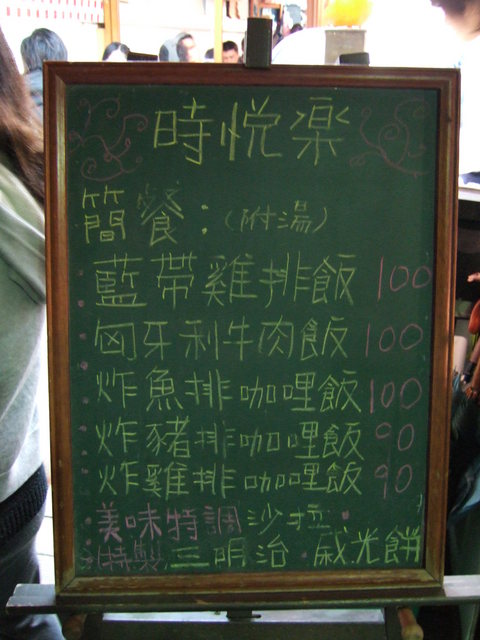 時悦楽
簡餐：(附湯)
藍帶雞排飯 100
匈牙利牛肉飯 100
炸魚排咖哩飯 100
炸豬排咖哩飯 90
炸雞排咖哩飯 90
美味特調沙拉
特製三明治·戚光餅